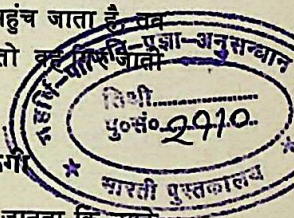 पहुंच जाता है, तब
तो वह सिर्फ जाती
महर्षि-पाणिनि-प्रज्ञा-अनुसन्धान
तिथी..................
पु०सं० 2910
भारती पुस्तकालय
जानता कि